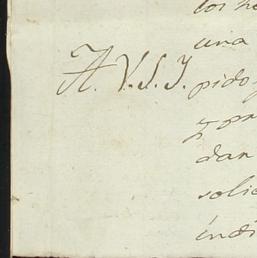 los
una
A. V.S.I. pido
dan
soli
indi